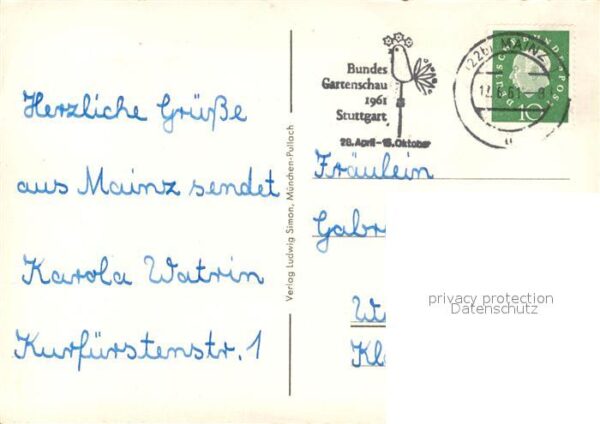 Herzliche Grüße
aus Mainz sendet
Karola Watrin
Kurfürstenstr. 1
Verlag Ludwig Simon, München-Pullach
Bundes
Gartenschau
1961
Stuttgart
28. April - 15. Oktober
(22b) MAINZ
DEUTSCHE BUNDESPOST
10
Fräulein
Gabr
Kl
privacy protection
Datenschutz